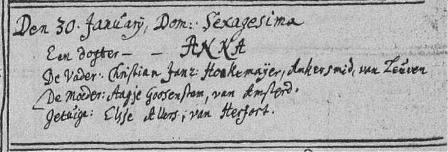 Den 30. January, Dom: Sexagesima
Een dogter — — ANNA
De Vader: Christian Janz: Honkemaijer, Ankersmid, van Leuven
De Moeder: Aagje Goosenstam, van Amsterd.
Getuige: Elsje Allers, van Herfort.